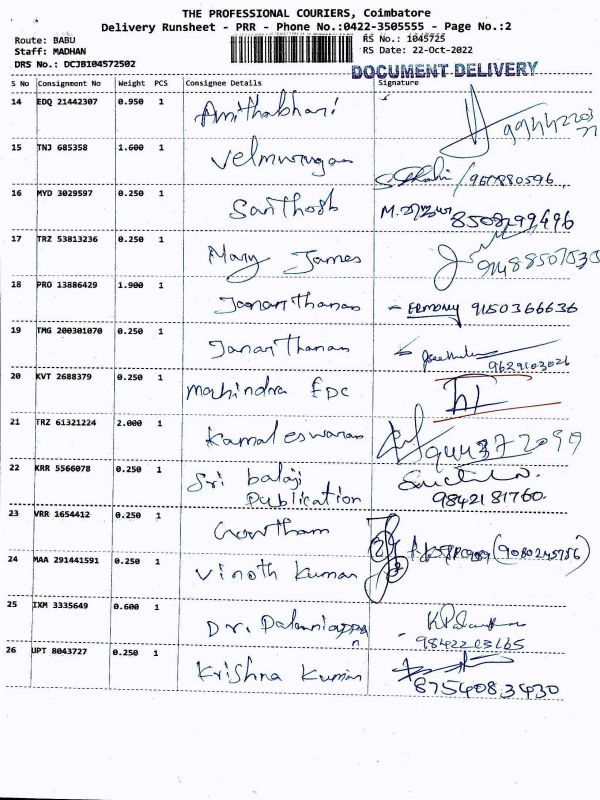 THE PROFESSIONAL COURIERS, Coimbatore
Delivery Runsheet - PRR - Phone No.:0422-3505555 - Page No.:2
Route: BABU
RS No.: 1045725
Staff: MADHAN
RS Date: 22-Oct-2022
DRS No.: DCJB104572502
DOCUMENT DELIVERY
S No Consignment No Weight PCS Consignee Details Signature
14 EDQ 21442307 0.950 1 Amithabhari
15 TNJ 685358 1.600 1 Velmurugan
16 MYD 3029597 0.250 1 Santhosh 8508299496
17 TRZ 53813236 0.250 1 Mary James
18 PRO 13886429 1.900 1 Janarthanan 9150366636
19 TMG 200301070 0.250 1 Janarthanan 9629103026
20 KVT 2688379 0.250 1 Mahindra EDC
21 TRZ 61321224 2.000 1 Kamaleswaran
22 KRR 5566078 0.250 1 Sri balaji
Publication 9842181760.
23 VRR 1654412 0.250 1 Gowtham (9080245756)
24 MAA 291441591 0.250 1 Vinoth Kumar
25 IXM 3335649 0.600 1 Dr. Palaniappan
9842203165
26 UPT 8043727 0.250 1 Krishna Kumar
8754083430